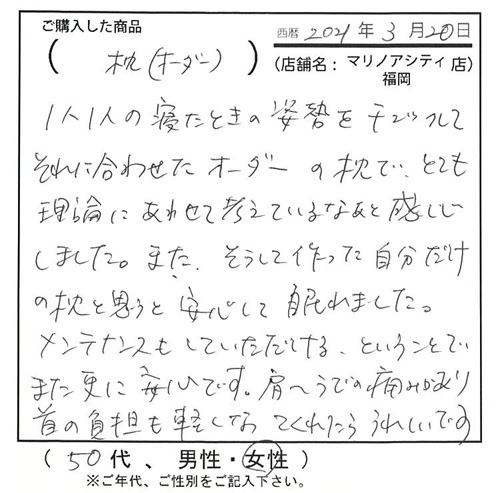 ご購入した商品
西暦 2021 年 3 月 20 日
( 枕(オーダー) )
(店舗名: マリノアシティ福岡 店)
1人1人の寝たときの姿勢をチェックして
それに合わせたオーダーの枕で、とても
理論にあわせて考えているなあと感心
しました。また、そうして作った自分だけ
の枕と思うと安心して眠れました。
メンテナンスもしていただける、ということで
また更に安心です。肩やうでの痛みがより
首の負担も軽くなってくれたらうれしいです
( 50代、男性・女性 )
※ご年代、ご性別をご記入下さい。